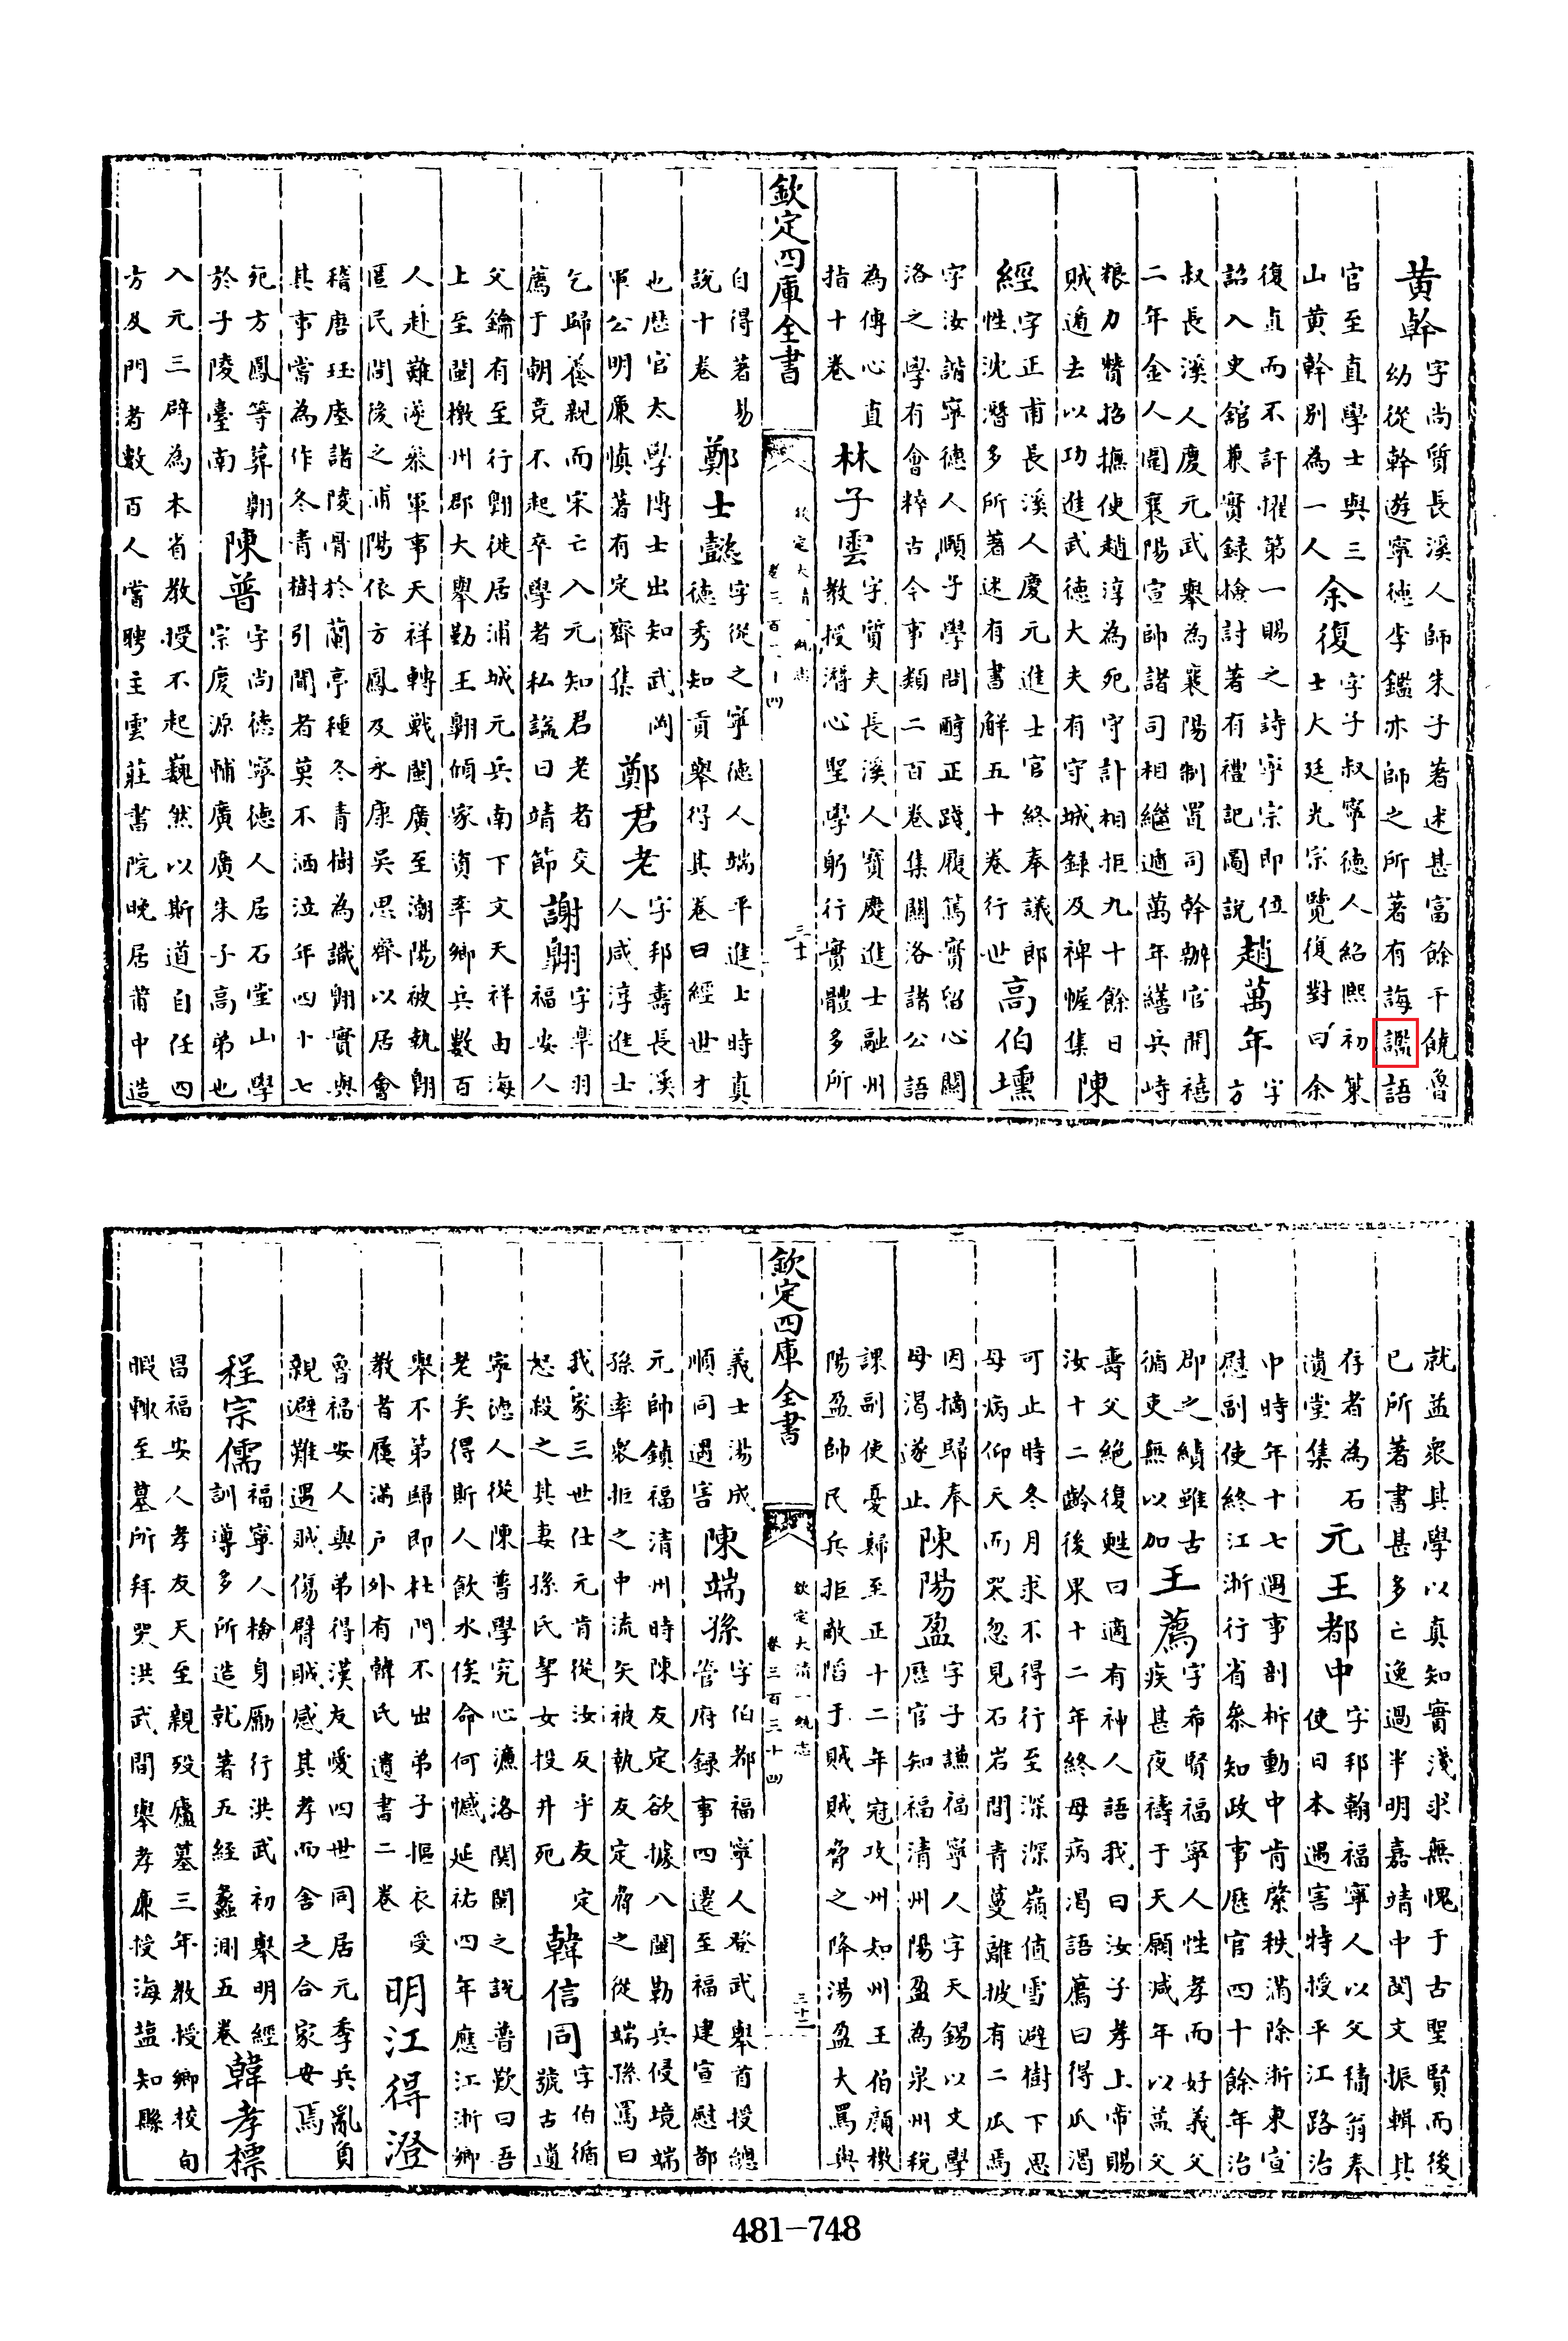 黄幹字尚質長溪人師朱子著述甚富餘干饒魯
幼從幹遊寧徳李鑑亦師之所著有誨譼語
官至直學士與三
山黄幹别為一人
余復字子叔寧徳人紹熙初䇿
士大廷光宗覽復對曰余
復直而不訐擢第一賜之詩寧宗即位
詔入史舘兼實録檢討著有禮記圖說
趙萬年字
方
叔長溪人慶元武舉為襄陽制置司幹辦官開禧
二年金人圍襄陽宣帥諸司相繼遁萬年繕兵峙
粮力贊招撫使趙淳為死守計相拒九十餘日
賊遁去以功進武徳大夫有守城録及裨幄集
陳
經字正甫長溪人慶元進士官終奉議郎
性沈潛多所著述有書解五十卷行世
高伯壎
字汝諧寧徳人頤子學問醇正踐履篤實留心關
洛之學有會粹古今事類二百卷集關洛諸公語
為傳心直
指十卷
林子雲字質夫長溪人寳慶進士融州
教授潛心聖學躬行實體多所
欽定四庫全書
欽定大清一統志
卷三百三十四
三十一
自得著易
説十卷
鄭士懿字從之寧徳人端平進士時真
徳秀知貢舉得其卷曰經世才
也歴官太學博士出知武岡
軍公明廉慎著有定齋集
鄭君老字邦壽長溪
人咸淳進士
乞歸養親而宋亡入元知君老者交
薦于朝竟不起卒學者私諡曰靖節
謝翺字臯羽
福安人
父鑰有至行翺徙居浦城元兵南下文天祥由海
上至閩檄州郡大舉勤王翺傾家資率鄉兵數百
人赴難遂叅軍事天祥轉戰閩廣至潮陽被執翺
匿民間後之浦陽依方鳳及永康吳思齊以居會
稽唐珏瘞諸陵骨於蘭亭種冬青樹為識翺實與
其事嘗為作冬青樹引聞者莫不洒泣年四十七
死方鳳等葬翺
於子陵臺南
陳普字尚徳寧徳人居石堂山學
宗慶源輔廣廣朱子高弟也
入元三辟為本省教授不起巍然以斯道自任四
方及門者數百人嘗聘主雲莊書院晚居莆中造
就益衆其學以真知實淺求無愧于古聖賢而後
已所著書甚多亡逸過半明嘉靖中閔文振輯其
存者為石
遺堂集
元王都中字邦翰福寧人以父積翁奉
使日本遇害特授平江路治
中時年十七遇事剖析動中肯綮秩滿除浙東宣
慰副使終江浙行省叅知政事歴官四十餘年治
郡之績雖古
循吏無以加
王薦字希賢福寧人性孝而好義父
疾甚夜禱于天願减年以益父
壽父絶復甦曰適有神人語我曰汝子孝上帝賜
汝十二齡後果十二年終母病渴語薦曰得瓜渴
可止時冬月求不得行至深深嶺值雪避樹下思
母病仰天而哭忽見石岩間青蔓離披有二瓜焉
因摘歸奉
母渴遂止
陳陽盈字子謙福寧人字天錫以文學
歴官知福清州陽盈為泉州税
課副使憂歸至正十二年寇攻州知州王伯顔檄
陽盈帥民兵拒敵䧟于賊賊脅之降湯盈大罵與
欽定四庫全書
欽定大清一統志
卷三百三十四
三十二
義士湯成
順同遇害
陳端孫字伯都福寧人登武舉首授總
管府録事四遷至福建宣慰都
元帥鎮福清州時陳友定欲據八閩勒兵侵境端
孫率衆拒之中流矢被執友定脅之從端孫罵曰
我家三世仕元肯從汝反乎友定
怒殺之其妻孫氏挈女投井死
韓信同字伯循
號古遺
寧徳人從陳普學究心濂洛關閩之說普歎曰吾
老矣得斯人飲水俟命何憾延祐四年應江浙鄉
舉不第歸即杜門不出弟子摳衣受
教者屨滿戶外有韓氏遺書二卷
明江得澄
魯福安人與弟得漢友愛四世同居元季兵亂負
親避難遇賊傷臂賊感其孝而舍之合家安焉
程宗儒福寧人檢身勵行洪武初舉明經
訓導多所造就著五經蠡測五卷
韓孝標
昌福安人孝友天至親殁廬墓三年教授鄉校旬
暇輒至墓所拜哭洪武間舉孝廉授海塩知縣